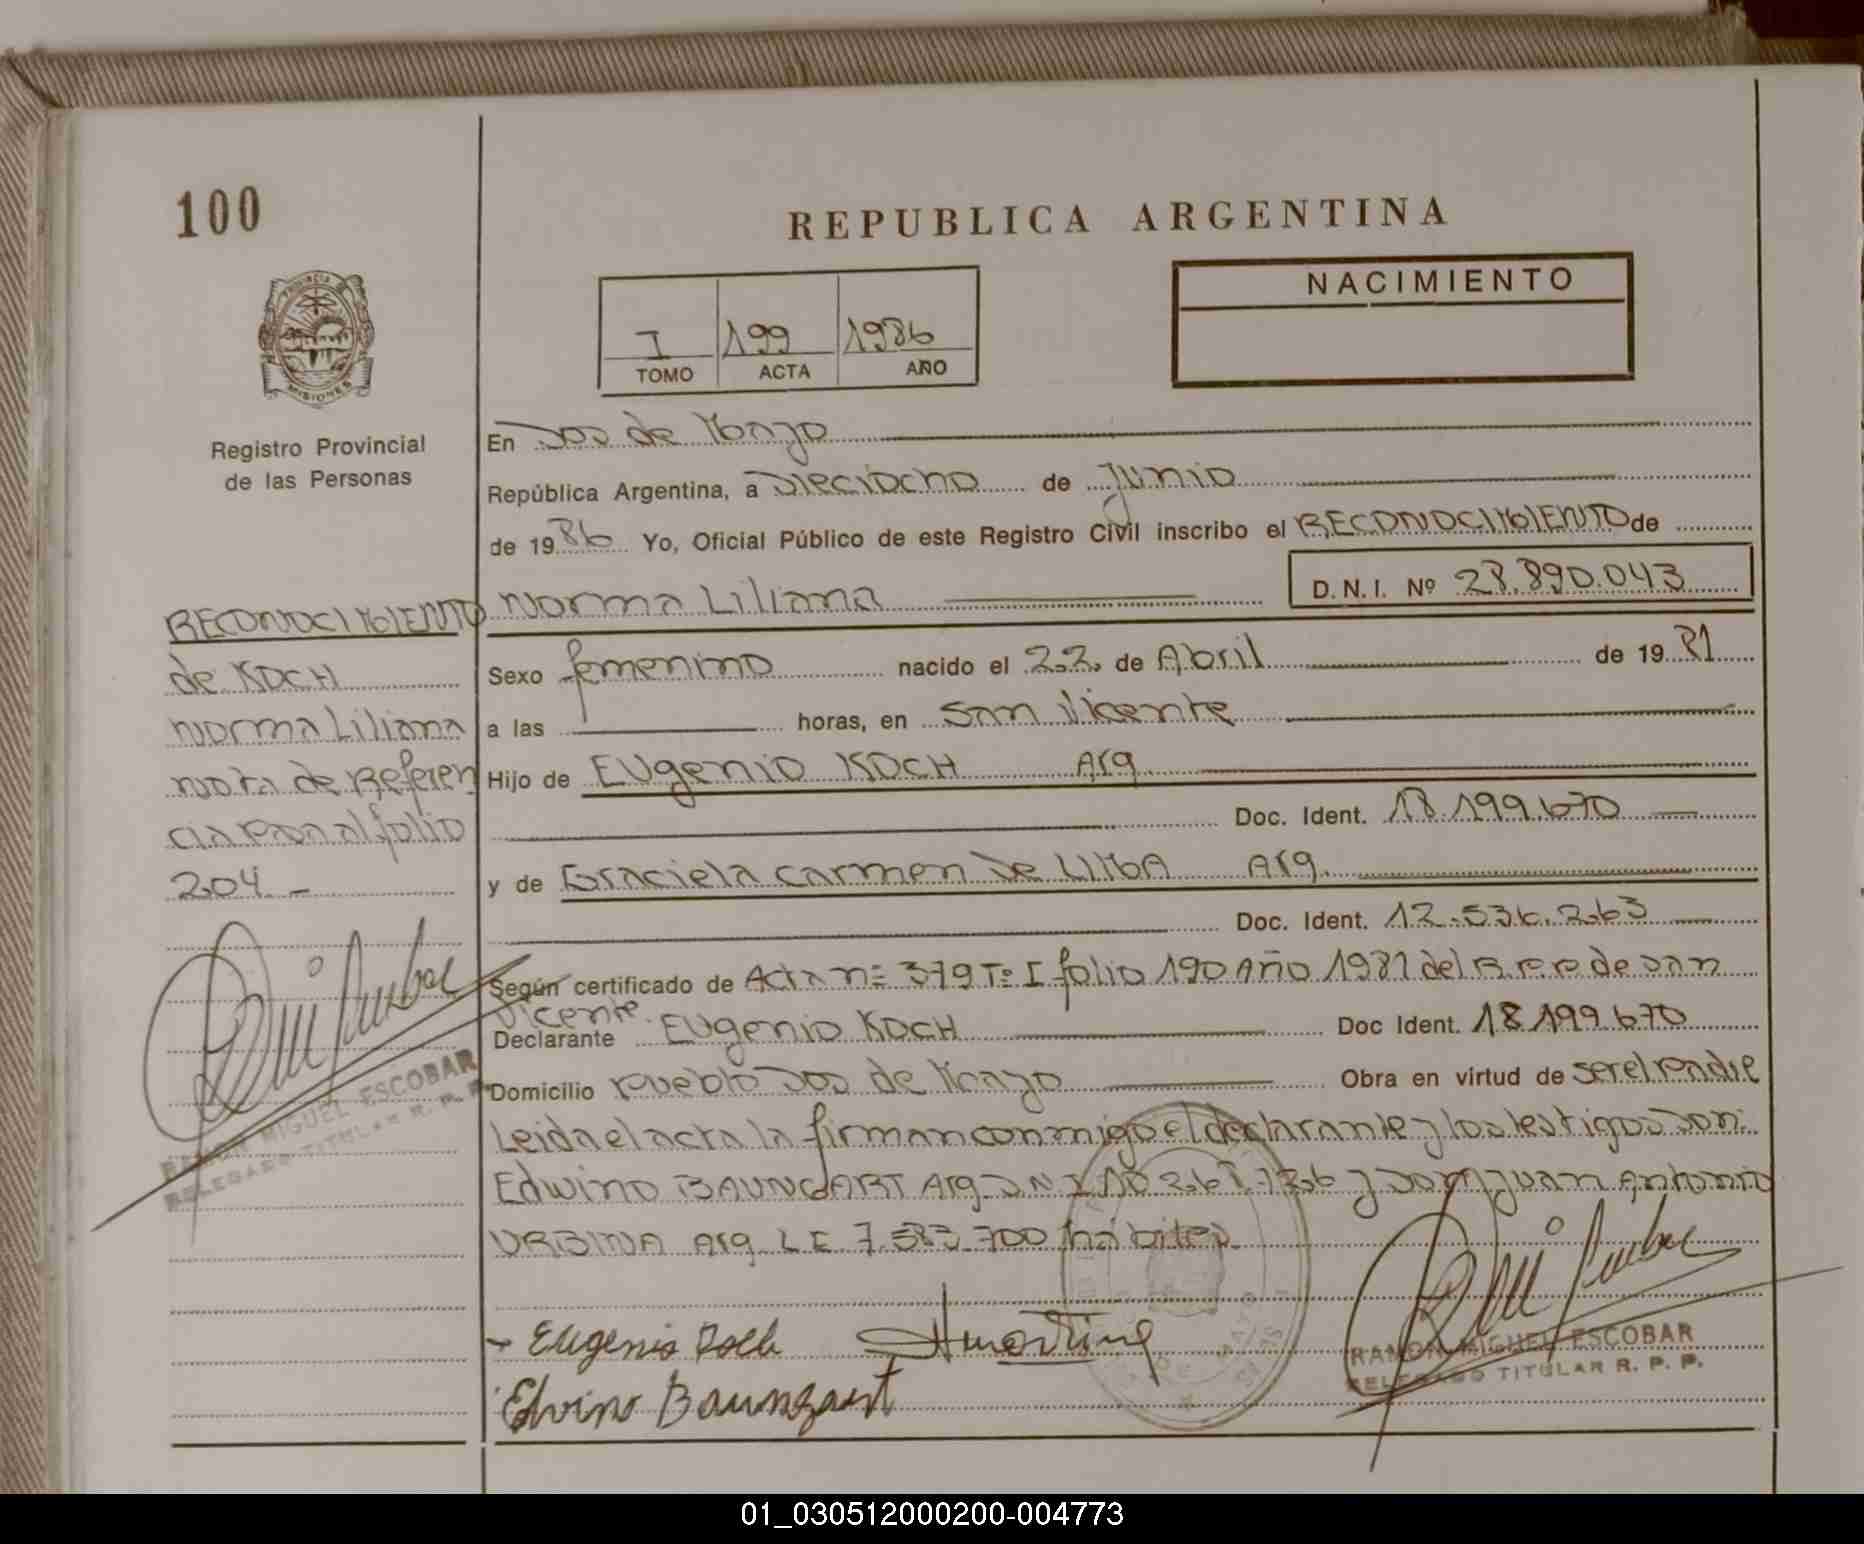 100
REPUBLICA ARGENTINA
NACIMIENTO
I 199 1986
TOMO ACTA AÑO
PROVINCIA DE
MISIONES
Registro Provincial
de las Personas
En Dos de Mayo
República Argentina, a Dieciocho de Junio
de 1986 Yo, Oficial Público de este Registro Civil inscribo el RECONOCIMIENTO de
Norma Liliana D.N.I. Nº 28.890.043
Sexo femenino nacido el 22 de Abril de 1981
a las horas, en San Vicente
Hijo de Eugenio KOCH Arg
Doc. Ident. 18.199.670
y de Graciela Carmen De LIMA Arg.
Doc. Ident. 12.536.263
Según certificado de Acta nº 379 Tº I folio 190 Año 1981 del R.P.P de San
Vicente.
Declarante Eugenio KOCH Doc Ident. 18199670
Domicilio Pueblo Dos de Mayo Obra en virtud de ser el Padre
Leida el acta la firman conmigo el declarante y los testigos Son:
Edwino BAUNGART Arg DNI 10 268.726 y Don Juan Antonio
URBINA Arg L E 7.583.700 habiles
RECONOCIMIENTO
de KOCH
Norma Liliana
nota de Referen
cia Pasa al folio
204 -
RAMON MIGUEL ESCOBAR
DELEGADO TITULAR R. P. P.
- Eugenio Koch
Edvino Baumgart
RAMON MIGUEL ESCOBAR
DELEGADO TITULAR R. P. P.
01_030512000200-004773